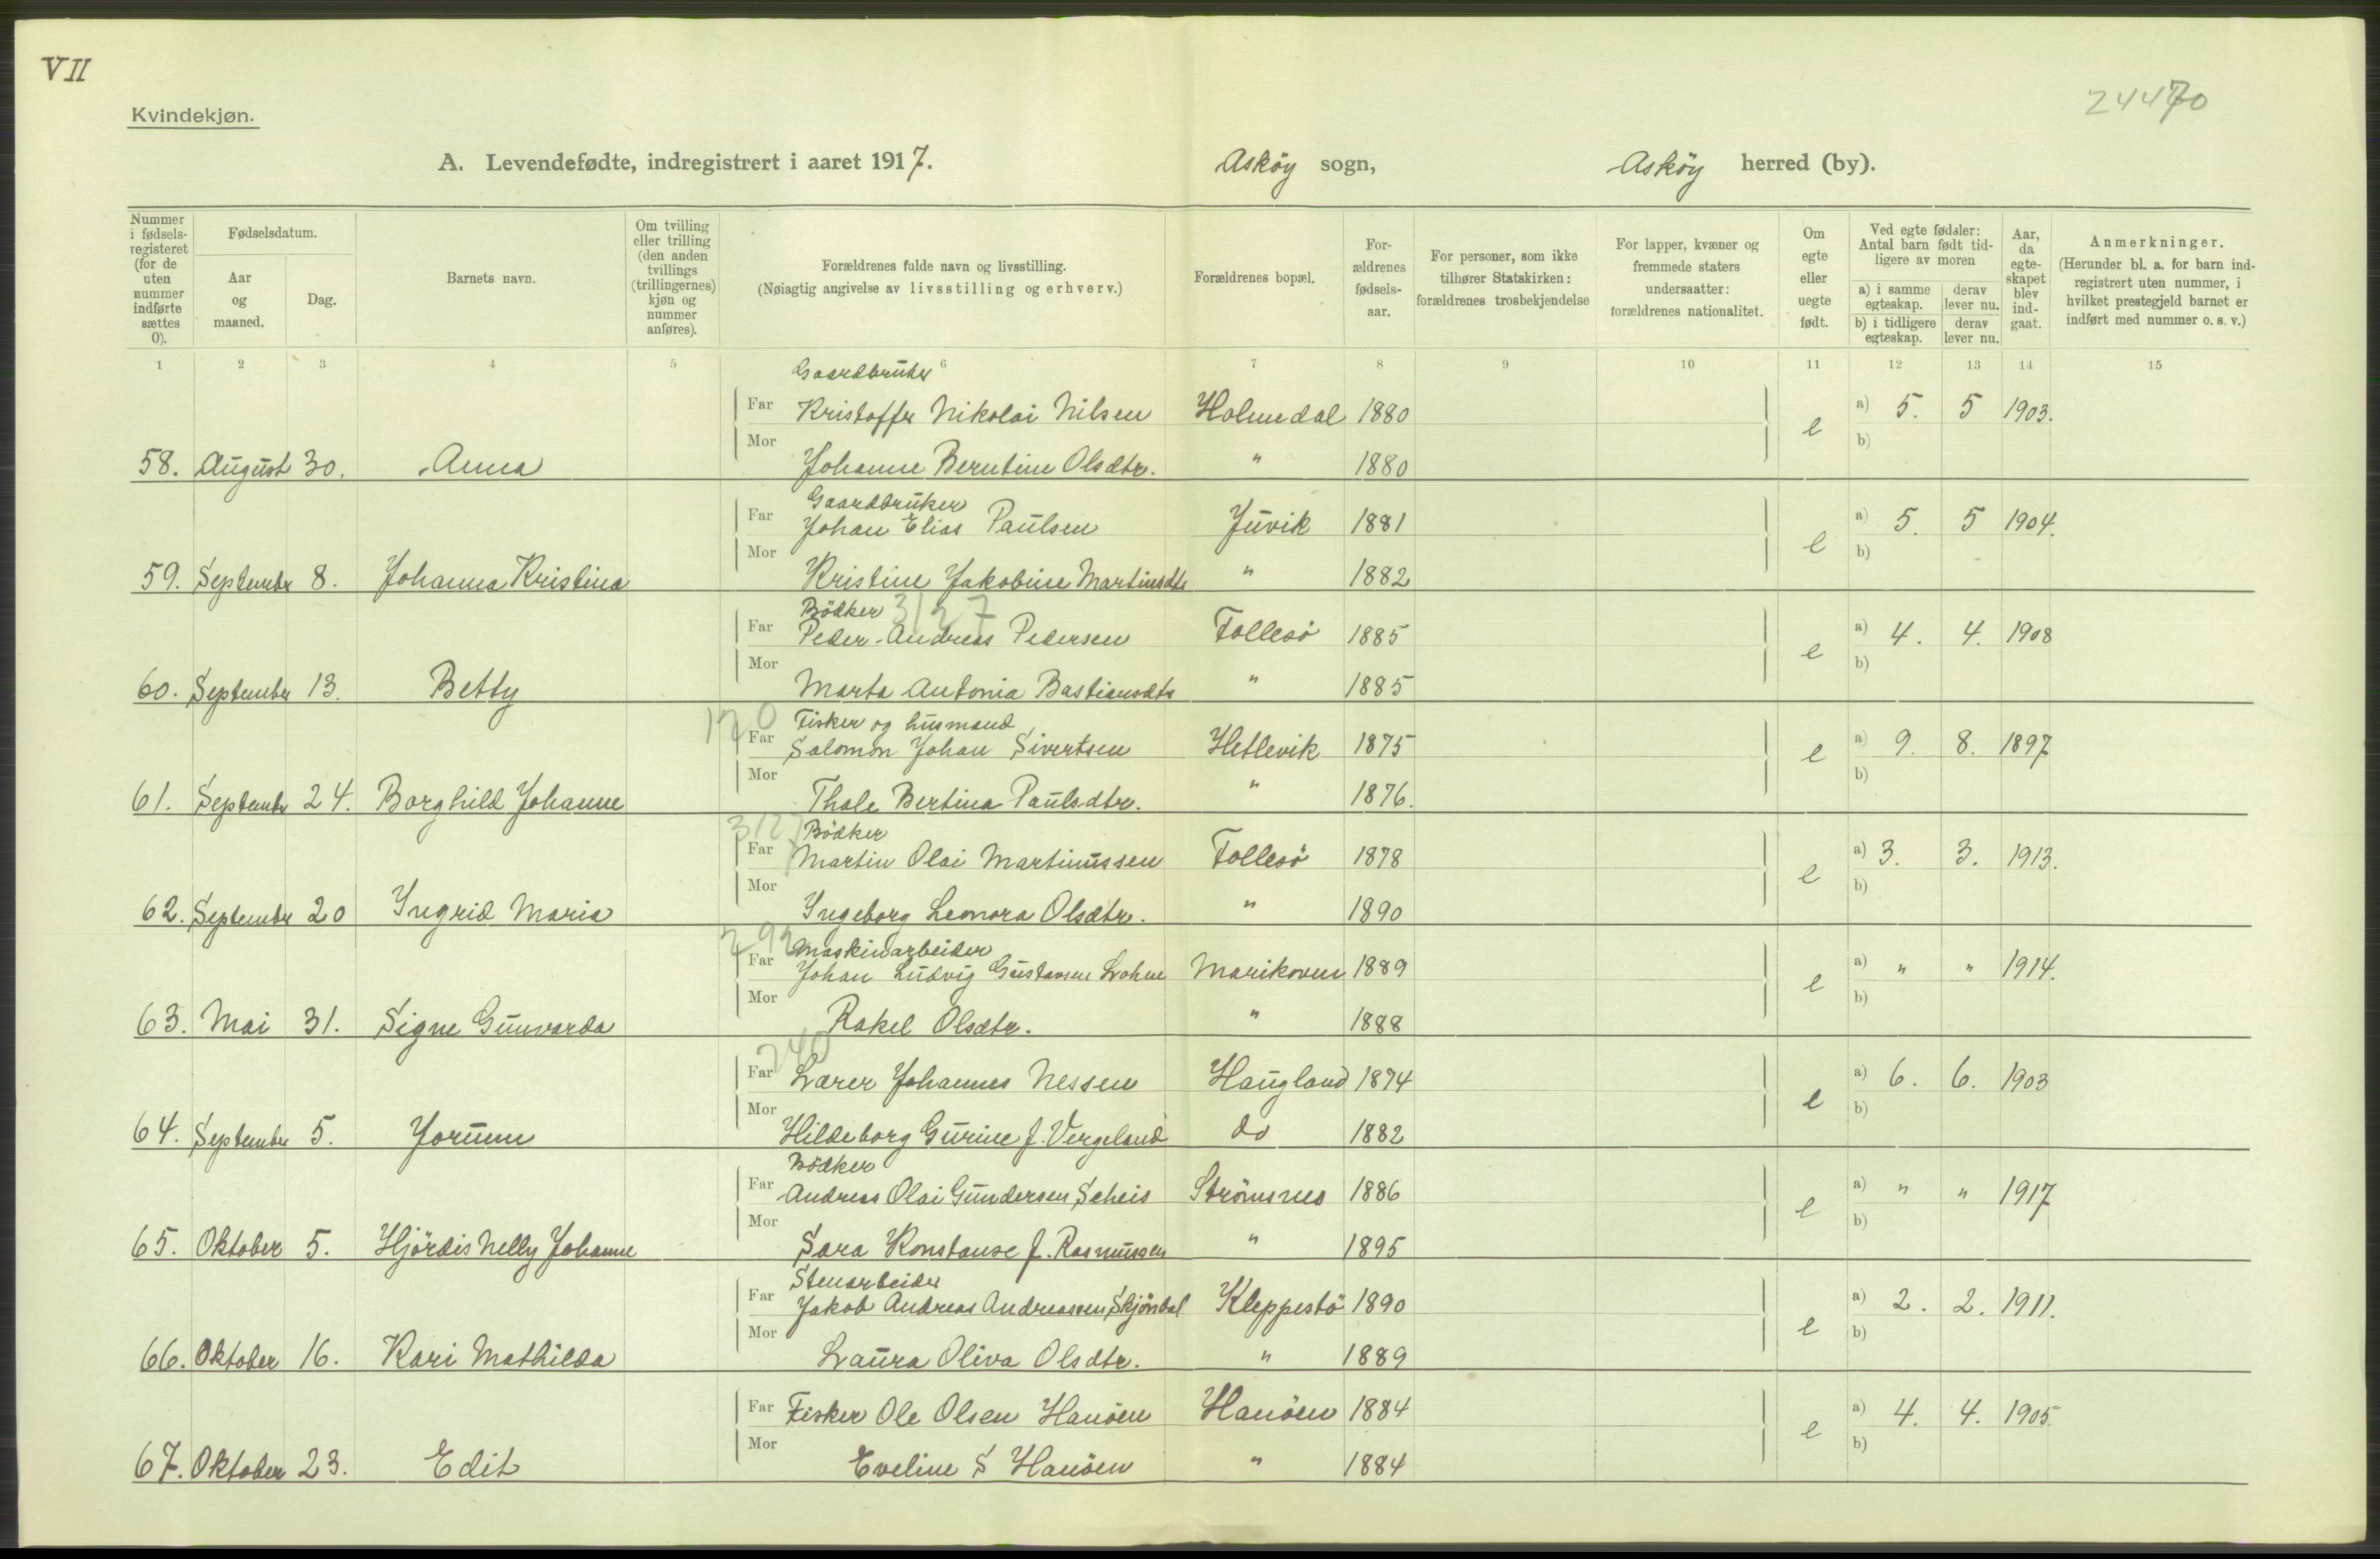 VII
24470
Kvindekjøn.
A. Levendefødte, indregistrert i aaret 1917. Asköy sogn, Asköy herred (by).
Nummer i fødsels-registeret (for de uten nummer indførte sættes 0).
Fødselsdatum.
Aar og maaned.
Dag.
Barnets navn.
Om tvilling eller trilling (den anden tvillings (trillingernes) kjøn og nummer anføres).
Forældrenes fulde navn og livsstilling.
(Nøiagtig angivelse av livsstilling og erhverv.)
Forældrenes bopæl.
For-ældrenes fødsels-aar.
For personer, som ikke tilhører Statskirken: forældrenes trosbekjendelse
For lapper, kvæner og fremmede staters undersaatter: forældrenes nationalitet.
Om egte eller uegte født.
Ved egte fødsler: Antal barn født tid-ligere av moren
a) i samme egteskap. derav lever nu.
b) i tidligere egteskap. derav lever nu.
Aar, da egte-skapet blev ind-gaat.
Anmerkninger.
(Herunder bl. a. for barn ind-registrert uten nummer, i hvilket prestegjeld barnet er indført med nummer o. s. v.)
1 2 3 4 5 6 7 8 9 10 11 12 13 14 15
Gaardbruker
Far Kristoffer Nikolai Nilsen Holmedal 1880 e a) 5. 5 1903.
Mor b)
58. August 30. Anna Johanne Berntine Olsdtr. " 1880
Gaardbruker
Far Johan Elias Paulsen Juvik 1881 e a) 5. 5 1904.
Mor b)
59. September 8. Johanna Kristina Kristine Jakobine Martinsdtr " 1882
Bödker 3127
Far Peder Andreas Pedersen Follesö 1885 e a) 4. 4. 1908
Mor b)
60. September 13. Betty Marta Antonia Bastiansdtr " 1885
120 Fisker og husmand
Far Salomon Johan Sivertsen Hetlevik 1875 e a) 9. 8. 1897
Mor b)
61. September 24. Borghild Johanne Thale Bertina Paulsdtr. " 1876.
3127 Bödker
Far Martin Olai Martinussen Follesö 1878 e a) 3. 3. 1913.
Mor b)
62. September 20 Ingrid Maria Ingeborg Leonora Olsdtr. " 1890
Maskinarbeider
Far Johan Ludvig Gustavsen Lohne Marikoven 1889 e a) " " 1914.
Mor b)
63. Mai 31. Signe Gunvarda Rakel Olsdtr. " 1888
240
Far Lærer Johannes Nessen Haugland 1874 e a) 6. 6. 1903
Mor b)
64. September 5. Jorunn Hildeborg Gurine f. Vergeland do 1882
Bödker
Far Andreas Olai Gundersen Scheis Strömsnes 1886 e a) " " 1917
Mor b)
65. Oktober 5. Hjördis Nelly Johanne Sara Konstanse f. Rasmussen " 1895
Stenarbeider
Far Jakob Andreas Andreassen Skjöndal Kleppestö 1890 e a) 2. 2. 1911.
Mor b)
66. Oktober 16. Kari Mathilda Laura Oliva Olsdtr. " 1889
Far Fisker Ole Olsen Hanöen Hanöen 1884 e a) 4. 4. 1905.
Mor b)
67. Oktober 23. Edit Eveline S Hanöen " 1884